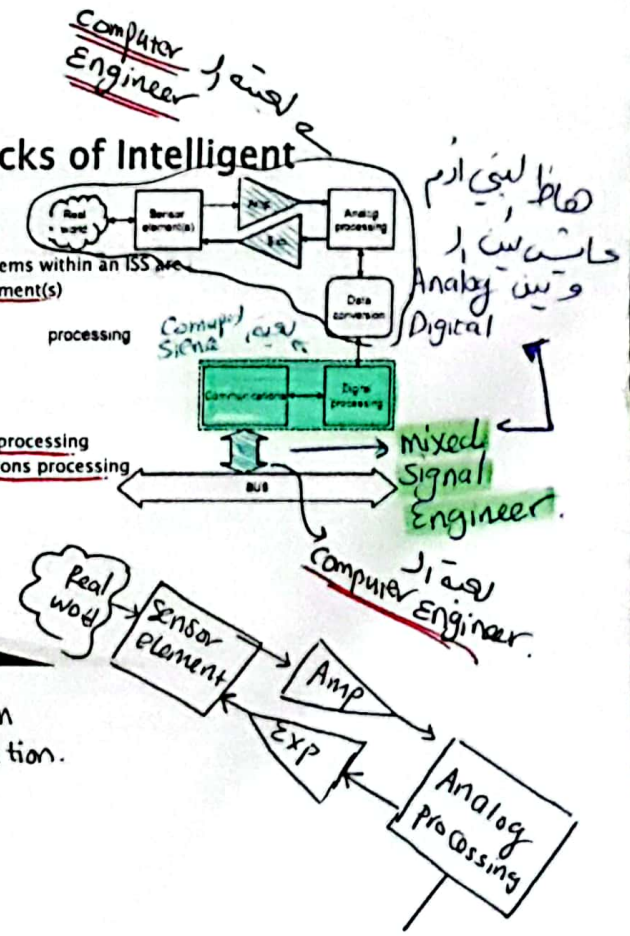 Computer
Engineer لعبة ال
cks of Intelligent
Real
world
Sensor
element(s)
Analog
processing
هاظ لبني ادم
عايش بين ال
Analog وبين
Digital
ems within an ISS are
ment(s)
Data
conversion
processing
Communications
Digital
processing
processing
ons processing
BUS
mixed
Signal
Engineer.
لعبة ال
Computer Engineer.
Real
word
Sensor
element
Amp
Exp
Analog
processing
n
tion.